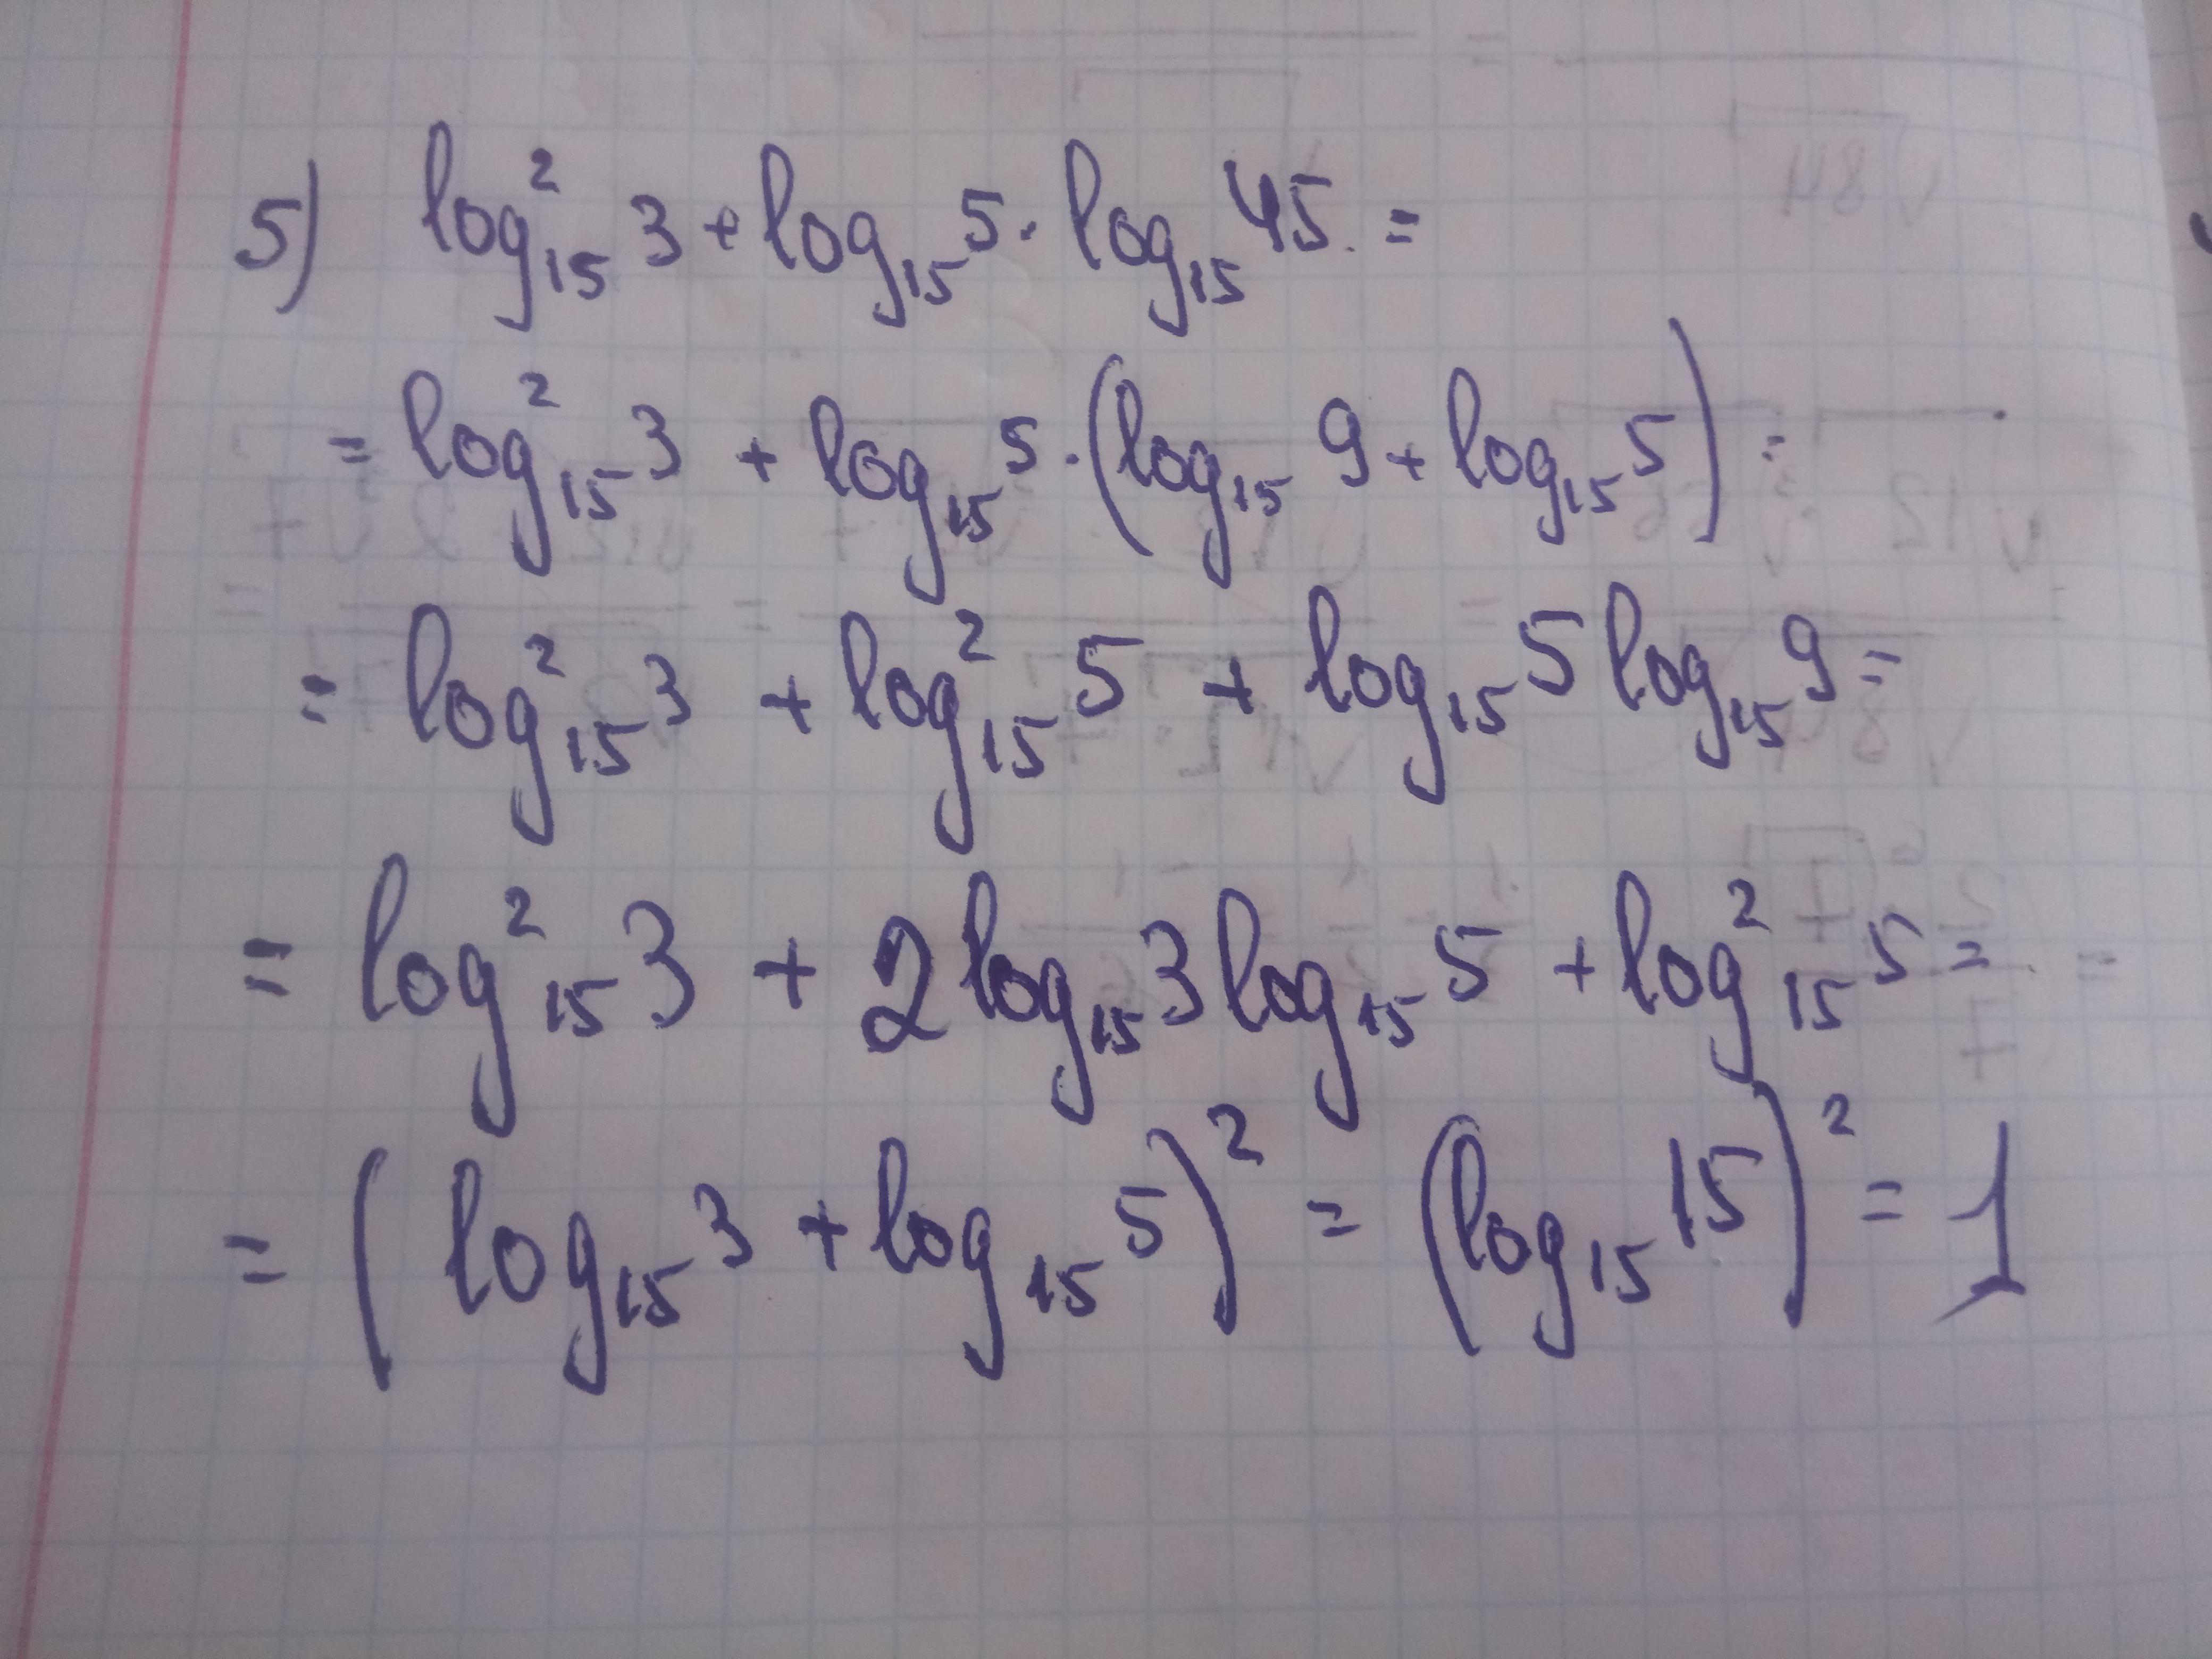 5) log²₁₅ 3 + log₁₅ 5 · log₁₅ 45 =
= log²₁₅ 3 + log₁₅ 5 · (log₁₅ 9 + log₁₅ 5) =
= log²₁₅ 3 + log²₁₅ 5 + log₁₅ 5 log₁₅ 9 =
= log²₁₅ 3 + 2 log₁₅ 3 log₁₅ 5 + log²₁₅ 5 =
= (log₁₅ 3 + log₁₅ 5)² = (log₁₅ 15)² = 1